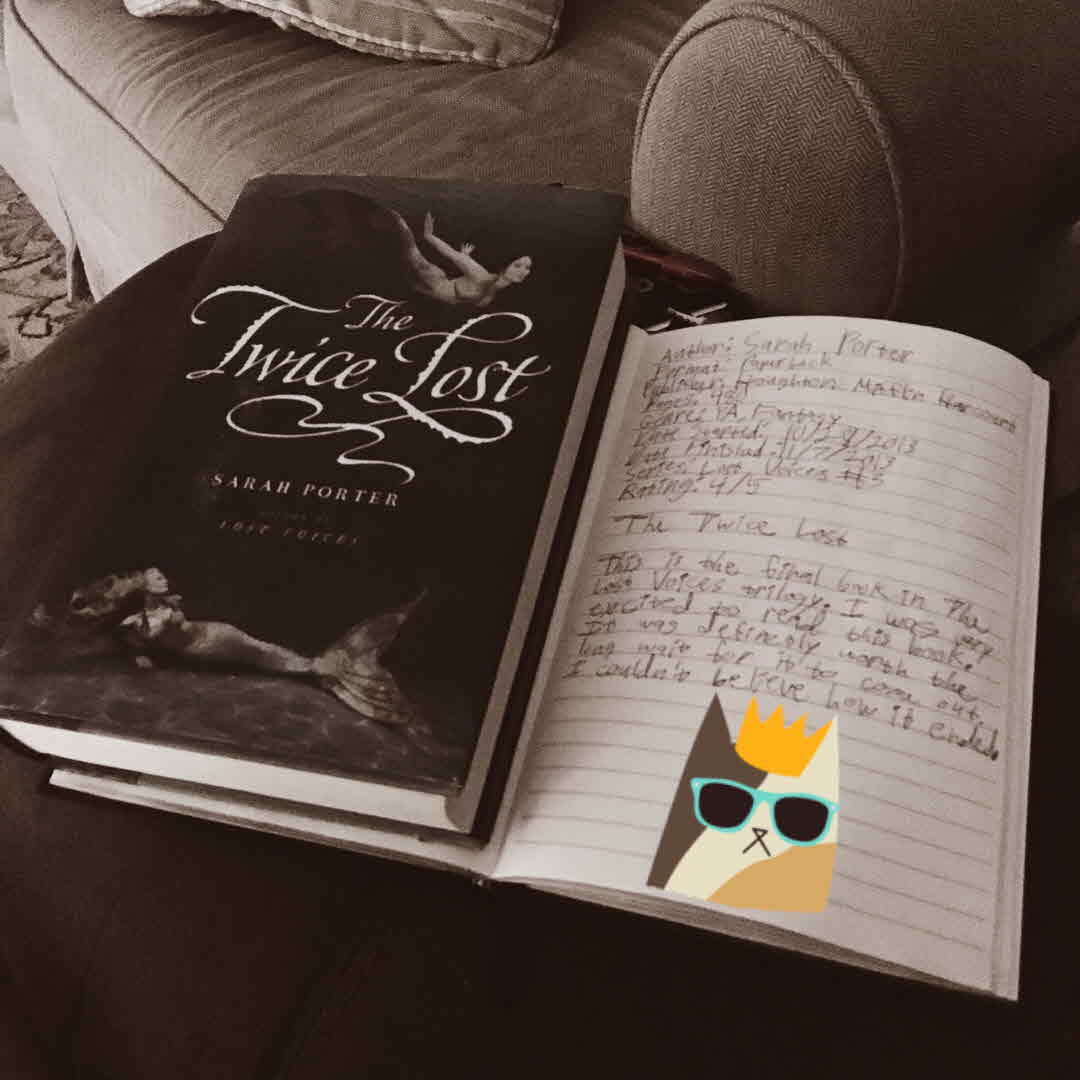 The
Twice Lost
SARAH PORTER
LOST VOICES
Author: Sarah Porter
Format: Paperback
Publisher: Houghton Mifflin Harcourt
Genre: YA, Fantasy
Date Started: 10/29/2013
11/7/2013
Series: Lost Voices #3
Rating: 4/5
The Twice Lost
This is the final book in The
Lost Voices trilogy. I was very
excited to read this book.
It was definetly worth the
long wait for it to come out.
I couldn't believe how it ended.